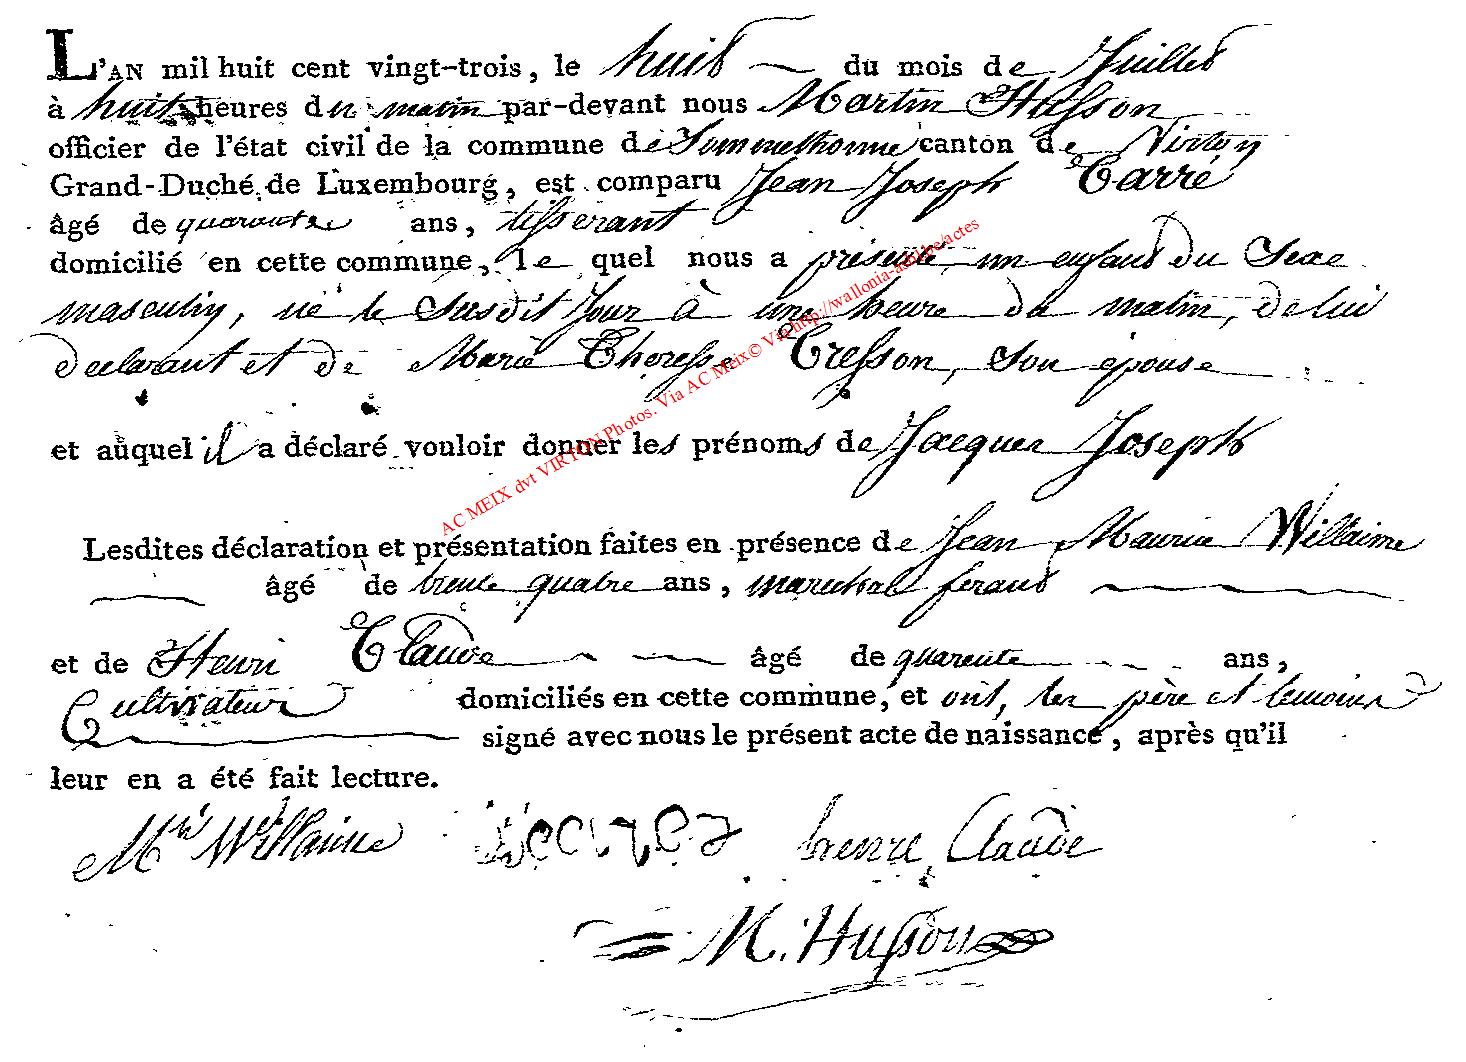 L'AN mil huit cent vingt-trois, le huit du mois de Juillet
à huit heures du matin par-devant nous Martin Husson
officier de l'état civil de la commune de Sommethonne canton de Virton
Grand-Duché de Luxembourg, est comparu Jean Joseph Carré
âgé de quarante ans, tisserant
domicilié en cette commune, le quel nous a présenté un enfant du Sexe
masculin, né le susdit Jour à une heure du matin, de lui
declarant et de Marie Theresse Cresson, son épouse
et auquel il a déclaré vouloir donner les prénoms de Jacques Joseph
Lesdites déclaration et présentation faites en présence de Jean Maurice Willaime
âgé de trente quatre ans, marechal ferant
et de Henri Claude âgé de quarente ans,
Cultivateur domiciliés en cette commune, et ont, les père et temoins
signé avec nous le présent acte de naissance, après qu'il
leur en a été fait lecture.
Mce Willaime henri Claude
M. Husson
AC MEIX dvt VIRTON Photos. Via AC Meix© Via http://wallonia-asbl.be/actes